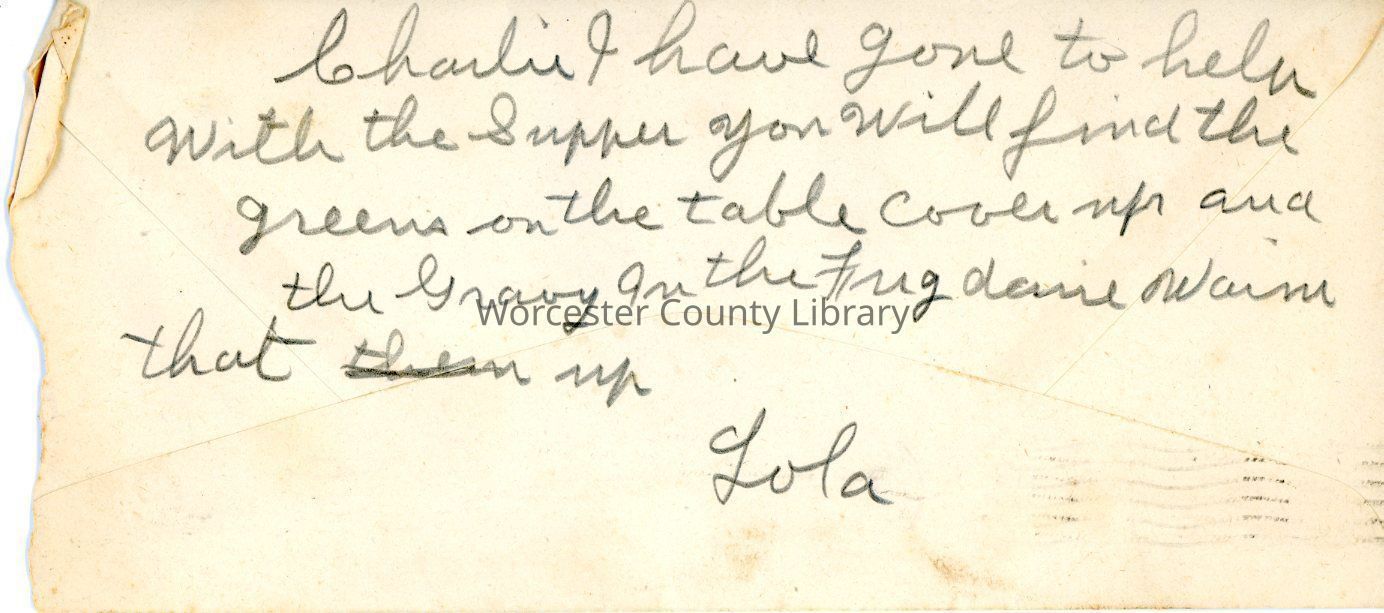 Charlie I have gone to help
With the Supper you will find the
greens on the table cover up and
the Gravy In the Frig daire Warm
that them up
Lola
Worcester County Library